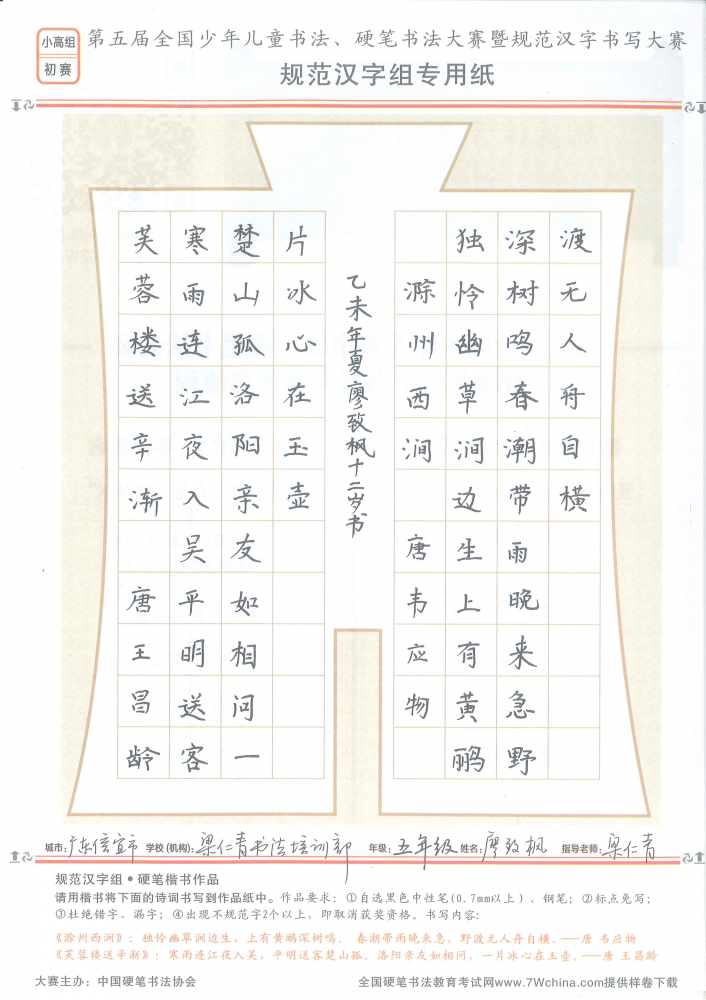 小高组
初赛
第五届全国少年儿童书法、硬笔书法大赛暨规范汉字书写大赛
规范汉字组专用纸
芙蓉楼送辛渐 唐王昌龄
寒雨连江夜入吴平明送客
楚山孤洛阳亲友如相问一
片冰心在玉壶
乙未年夏廖致枫十二岁书
滁州西涧 唐韦应物
独怜幽草涧边生上有黄鹂
深树鸣春潮带雨晚来急野
渡无人舟自横
城市:广东信宜市 学校(机构):梁仁青书法培训部 年级:五年级 姓名:廖致枫 指导老师:梁仁青
规范汉字组●硬笔楷书作品
请用楷书将下面的诗词书写到作品纸中。作品要求:①自选黑色中性笔(0.7mm以上)、钢笔;②标点免写;
③杜绝错字、漏字;④出现不规范字2个以上,即取消获奖资格。书写内容:
《滁州西涧》:独怜幽草涧边生,上有黄鹂深树鸣。春潮带雨晚来急,野渡无人舟自横。——唐 韦应物
《芙蓉楼送辛渐》:寒雨连江夜入吴,平明送客楚山孤。洛阳亲友如相问,一片冰心在玉壶。——唐 王昌龄
大赛主办:中国硬笔书法协会 全国硬笔书法教育考试网www.7Wchina.com提供样卷下载